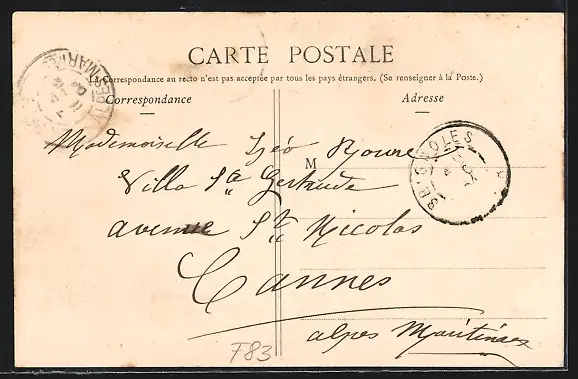 CARTE POSTALE
La Correspondance au recto n'est pas acceptée par tous les pays étrangers. (Se renseigner à la Poste.)
Correspondance
Adresse
Mademoiselle
M
Villa Ste Gertrude
avenue St Nicolas
Cannes
alpes Maritimes
BRIGNOLES
F83